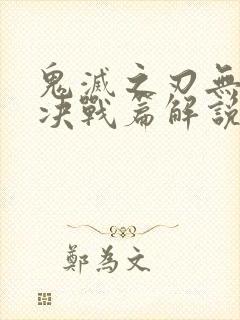 鬼滅之刃無
決戰篇解說
鄭為文